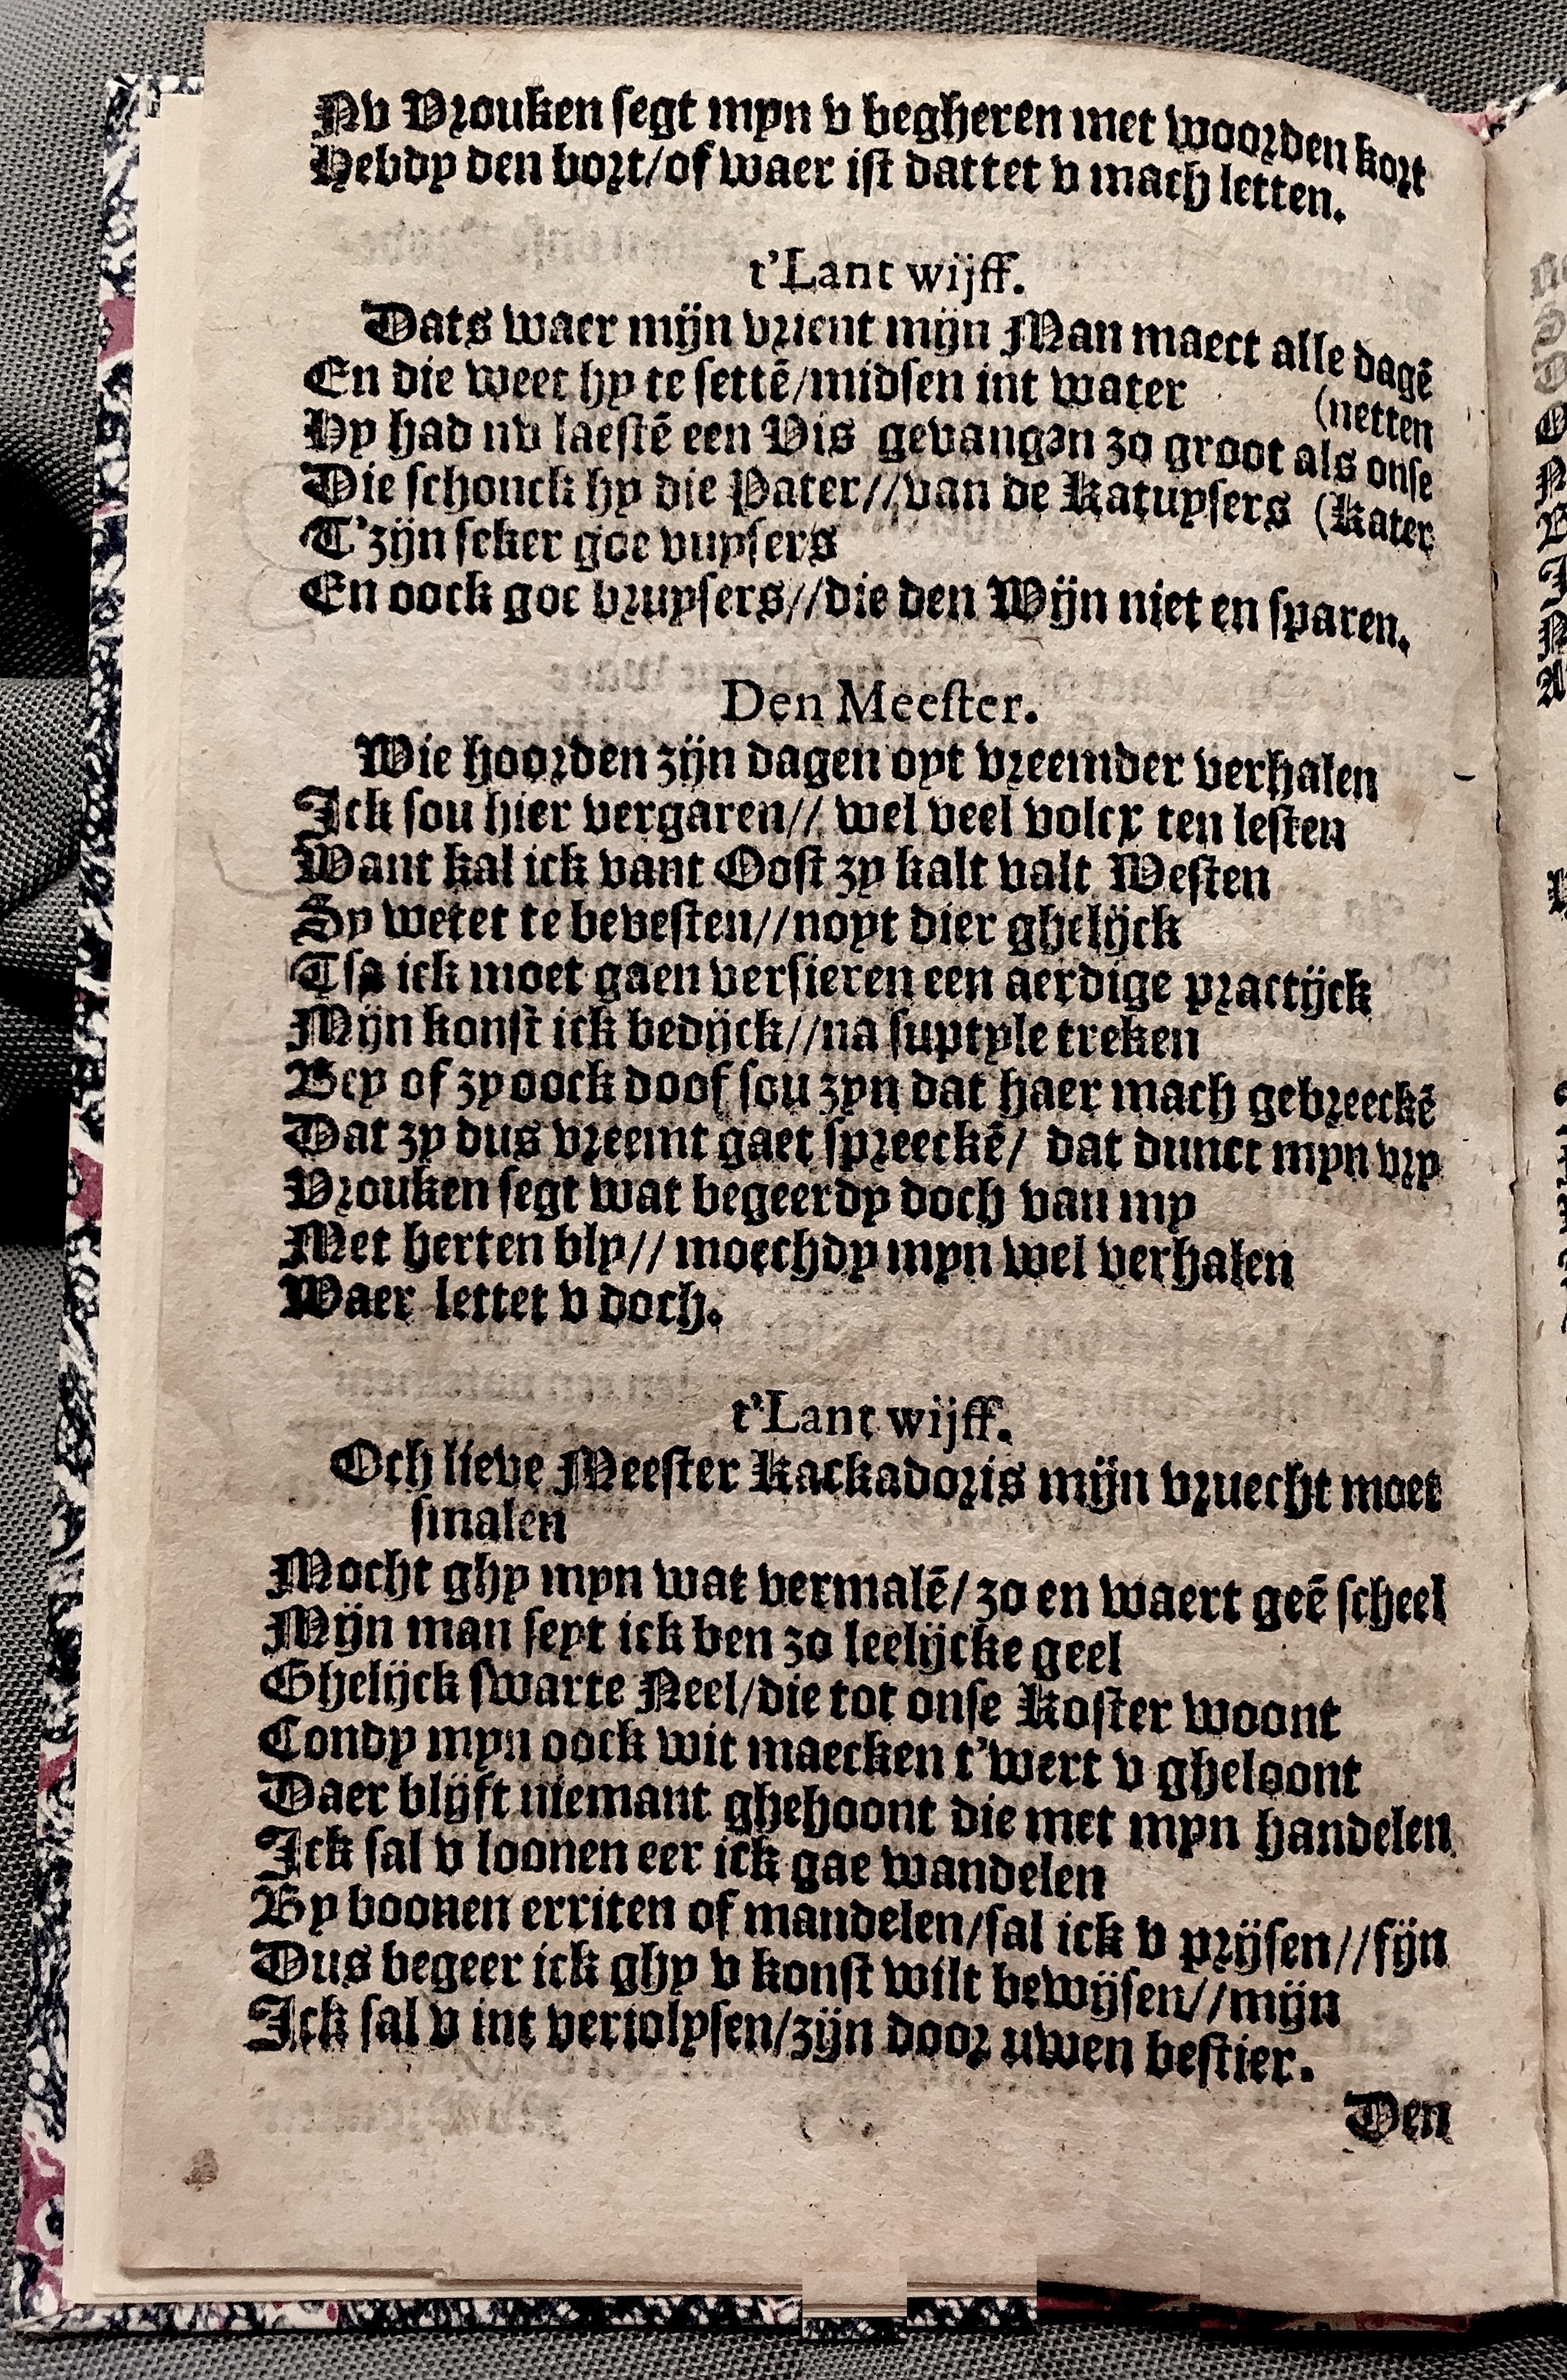 Nv Vrouken segt myn v begheren met woorden kort
Hebdy den bort/of waer ist dattet v mach letten.
t'Lant wijff.
Dats waer mijn vrient mijn Man maect alle dagē
(netten
En die weet hy te settē/midsen int water
Hy had nv laestē een Vis gevangen zo groot als onse
(Kater
Die schonck hy die Pater//van de Katuysers
T'zijn seker goe buysers
En oock goe bruysers//die den Wijn niet en sparen.
Den Meester.
Wie hoorden zijn dagen oyt vreemder verhalen
Ick sou hier vergaren// wel veel volcx ten lesten
Want kal ick vant Oost zy kalt valt Westen
Sy wetet te bevesten//noyt dier ghelijck
Tsa ick moet gaen versieren een aerdige practijck
Mijn konst ick bedijck//na suptyle treken
Bey of zy oock doof sou zyn dat haer mach gebreeckē
Dat zy dus vreemt gaet spreeckē/ dat dunct myn vry
Vrouken segt wat begeerdy doch van my
Met herten bly// moechdy myn wel verhalen
Waer lettet v doch.
t'Lant wijff.
Och lieve Meester Kackadoris mijn vruecht moet
smalen
Mocht ghy myn wat vermalē/ zo en waert geē scheel
Mijn man seyt ick ben zo leelijcke geel
Ghelijck swarte Neel/die tot onse Koster woont
Condy myn oock wit maecken t'wert v gheloont
Daer blijft niemant ghehoont die met myn handelen
Ick sal v loonen eer ick gae wandelen
By boonen erriten of mandelen/sal ick v prijsen//fijn
Dus begeer ick ghy v konst wilt bewijsen//mijn
Ick sal v int veriolysen/zijn door uwen bestier.
Den